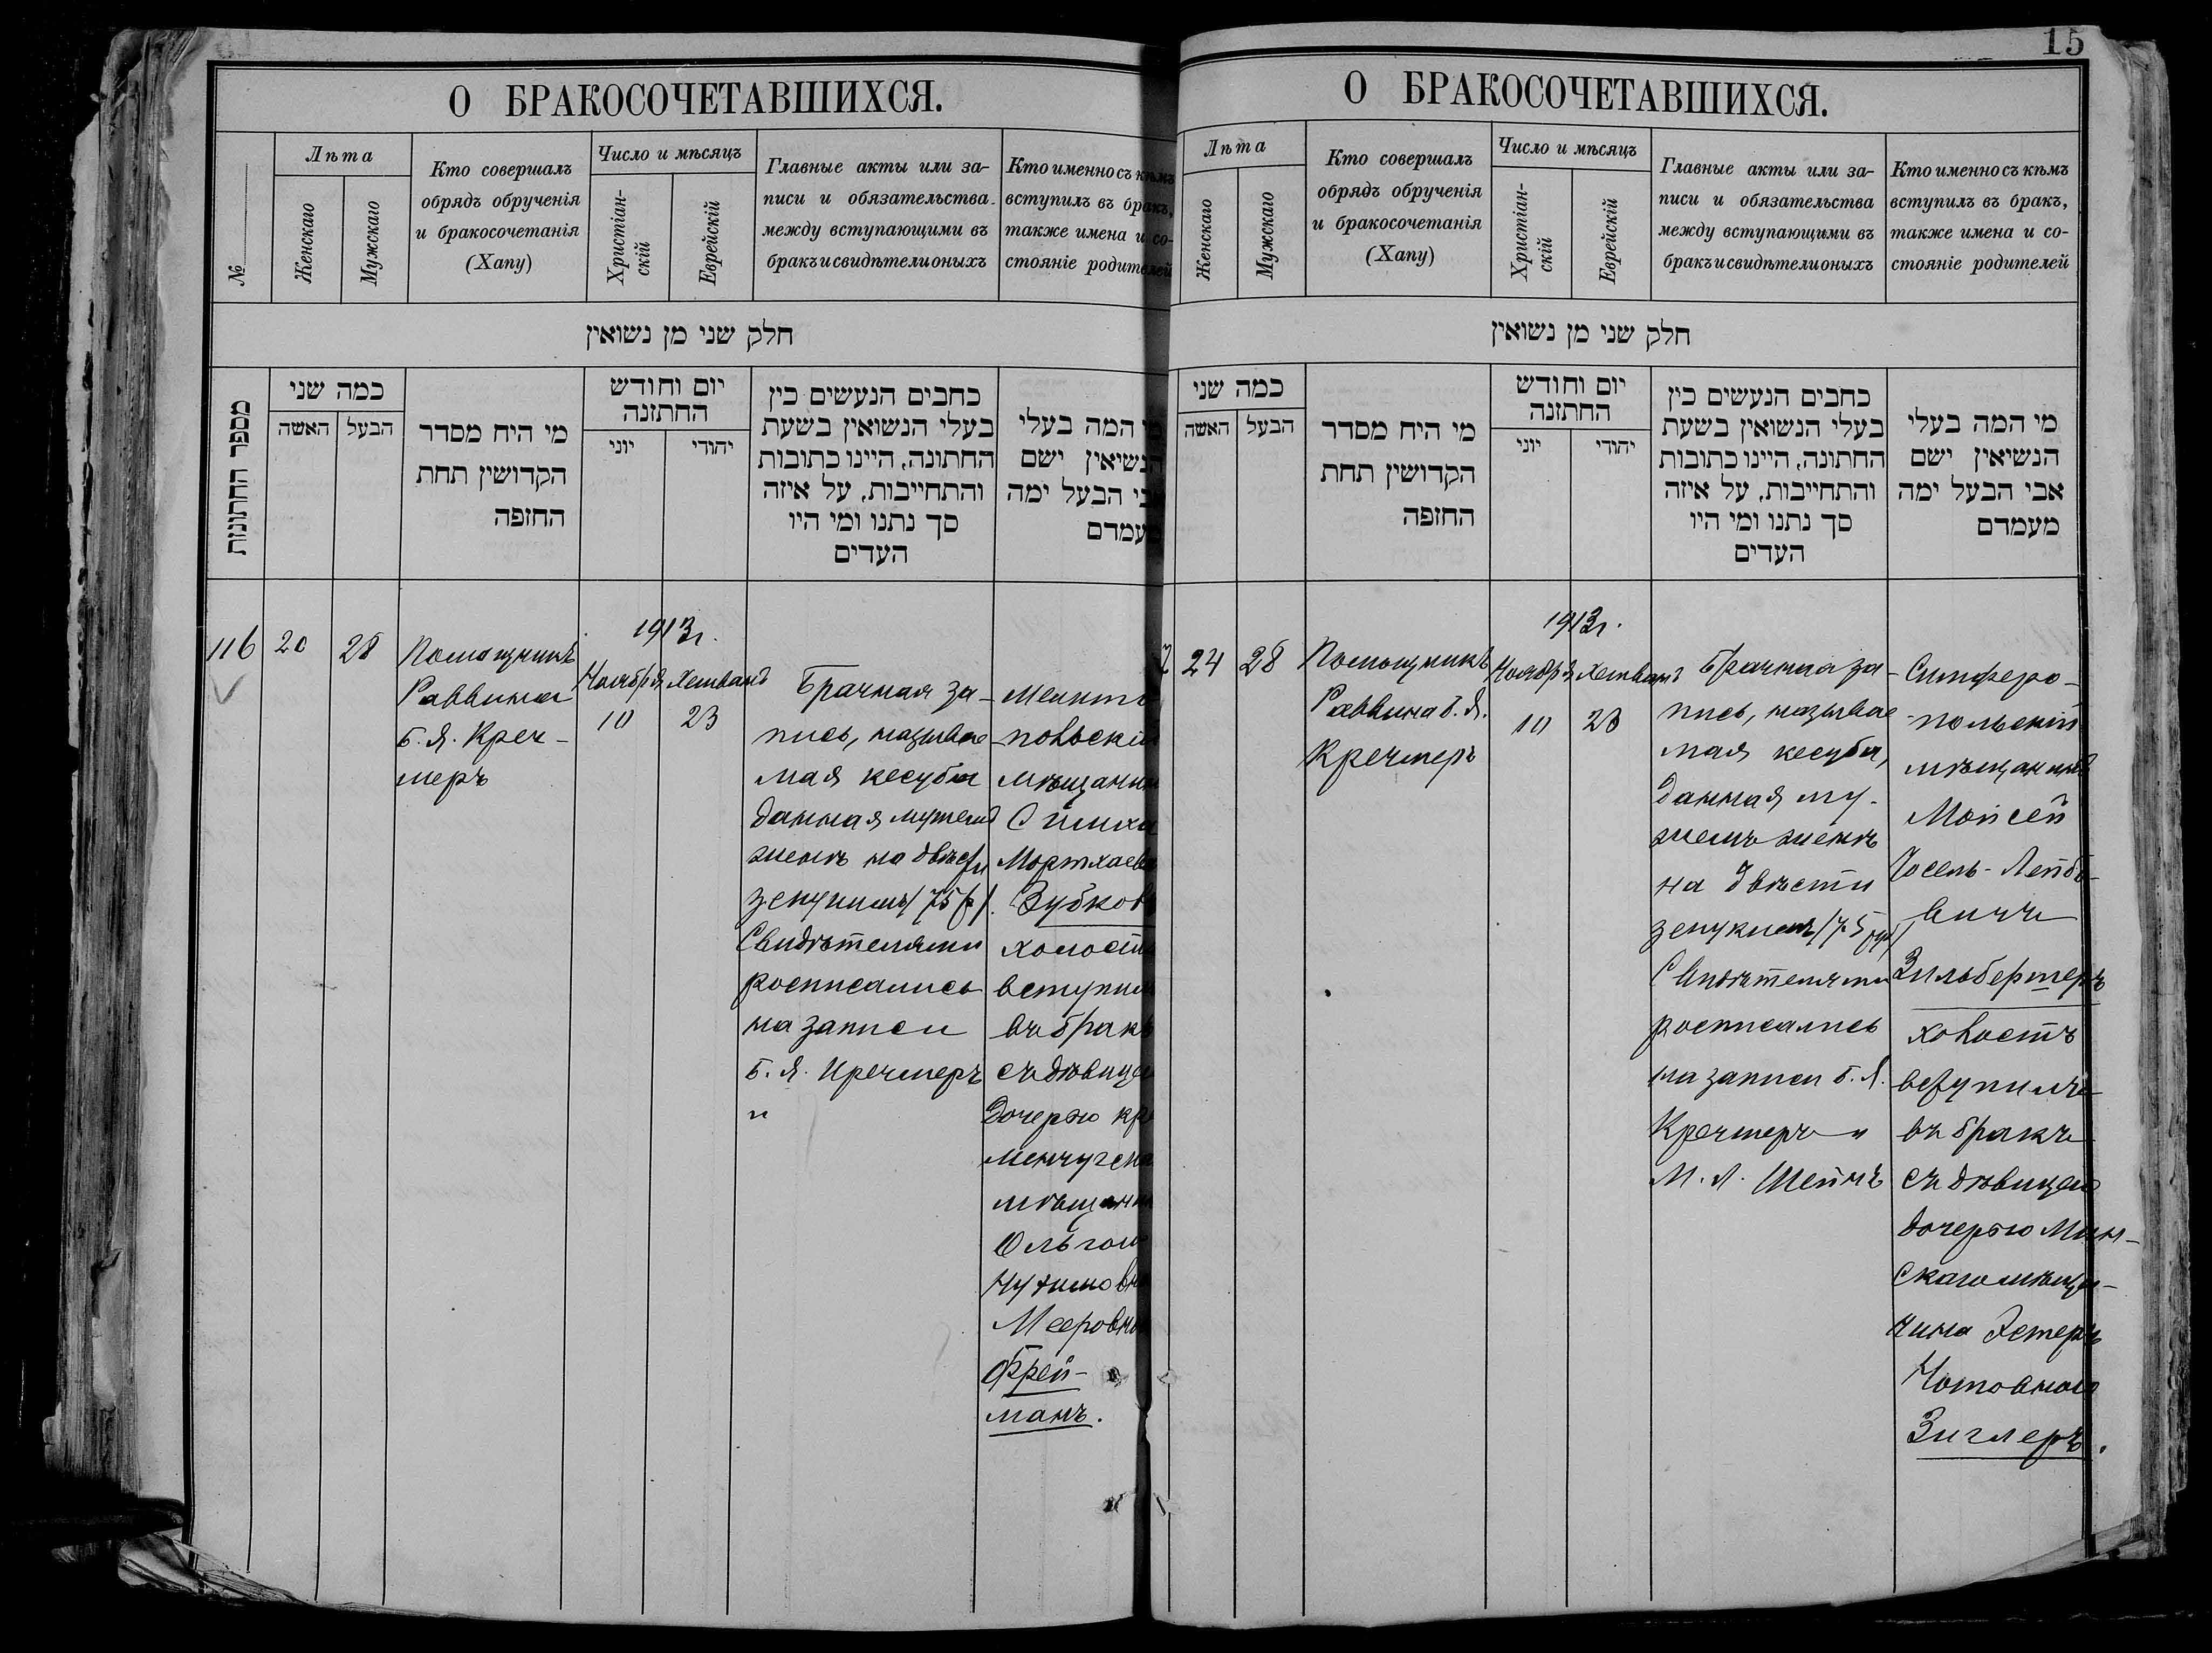 15
О БРАКОСОЧЕТАВШИХСЯ.
№
Лѣта
Женскаго
Мужскаго
Кто совершалъ
обрядъ обрученія
и бракосочетанія
(Хапу)
Число и мѣсяцъ
Христіан-
скій
Еврейскій
Главные акты или за-
писи и обязательства
между вступающими въ
бракъ и свидѣтели оныхъ
Кто именно съ кѣмъ
вступилъ въ бракъ,
также имена и со-
стояніе родителей
חלק שני מן נשואין
מספר החתונות
כמה שני
האשה
הבעל
מי היח מסדר
הקדושין תחת
החזפה
יום וחודש
החתזנה
יוני
יהודי
כחבים הנעשים כין
בעלי הנשואין בשעת
החתונה, היינו כתובות
והתחייבות, על איזה
סך נתנו ומי היו
העדים
מי המה בעלי
הנשיאין ישם
אבי הבעל ימה
מעמדם
116
20
28
Помощникъ
Раввина
Б. Я. Креч-
меръ
1913 г.
Ноября
10
Хешванъ
23
Брачная за-
пись, называе
мая кесуба
данная мужемъ
женѣ на двѣсти
зекукимъ (75 р).
Свидѣтелями
росписались
на записи
Б. Я. Кречмеръ
и
Мелито
польскій
мѣщанин
Симха
Мортхаев
Зубков
холост
вступил
въ бракъ
съ дѣвицею
дочерью кре
менчугска
мѣщанин
Ольгою
Нухимовн
Мееровн
Фрей-
манъ.
О БРАКОСОЧЕТАВШИХСЯ.
Лѣта
Женскаго
Мужскаго
Кто совершалъ
обрядъ обрученія
и бракосочетанія
(Хапу)
Число и мѣсяцъ
Христіан-
скій
Еврейскій
Главные акты или за-
писи и обязательства
между вступающими въ
бракъ и свидѣтели оныхъ
Кто именно съ кѣмъ
вступилъ въ бракъ,
также имена и со-
стояніе родителей
חלק שני מן נשואין
כמה שני
האשה
הבעל
מי היח מסדר
הקדושין תחת
החזפה
יום וחודש
החתזנה
יוני
יהודי
כחבים הנעשים כין
בעלי הנשואין בשעת
החתונה, היינו כתובות
והתחייבות, על איזה
סך נתנו ומי היו
העדים
מי המה בעלי
הנשיאין ישם
אבי הבעל ימה
מעמדם
7
24
28
Помощникъ
Раввина Б. Я.
Кречмеръ
1913 г.
Ноября
10
Хешванъ
23
Брачная за-
пись, называе
мая кесуба,
данная му-
жемъ женѣ
на двѣсти
зекукимъ (75 руб)
Свидѣтелями
росписались
на записи Б. Я.
Кречмеръ и
М. Л. Шейнъ
Симферо-
польскій
мѣщанинъ
Моисей
Іосель-Лейбо-
вичъ
Зильбермеръ
холостъ
вступилъ
въ бракъ
съ дѣвицею
дочерью Мин-
скаго мѣща-
нина Эстеръ
Нотовною
Зиглеръ.